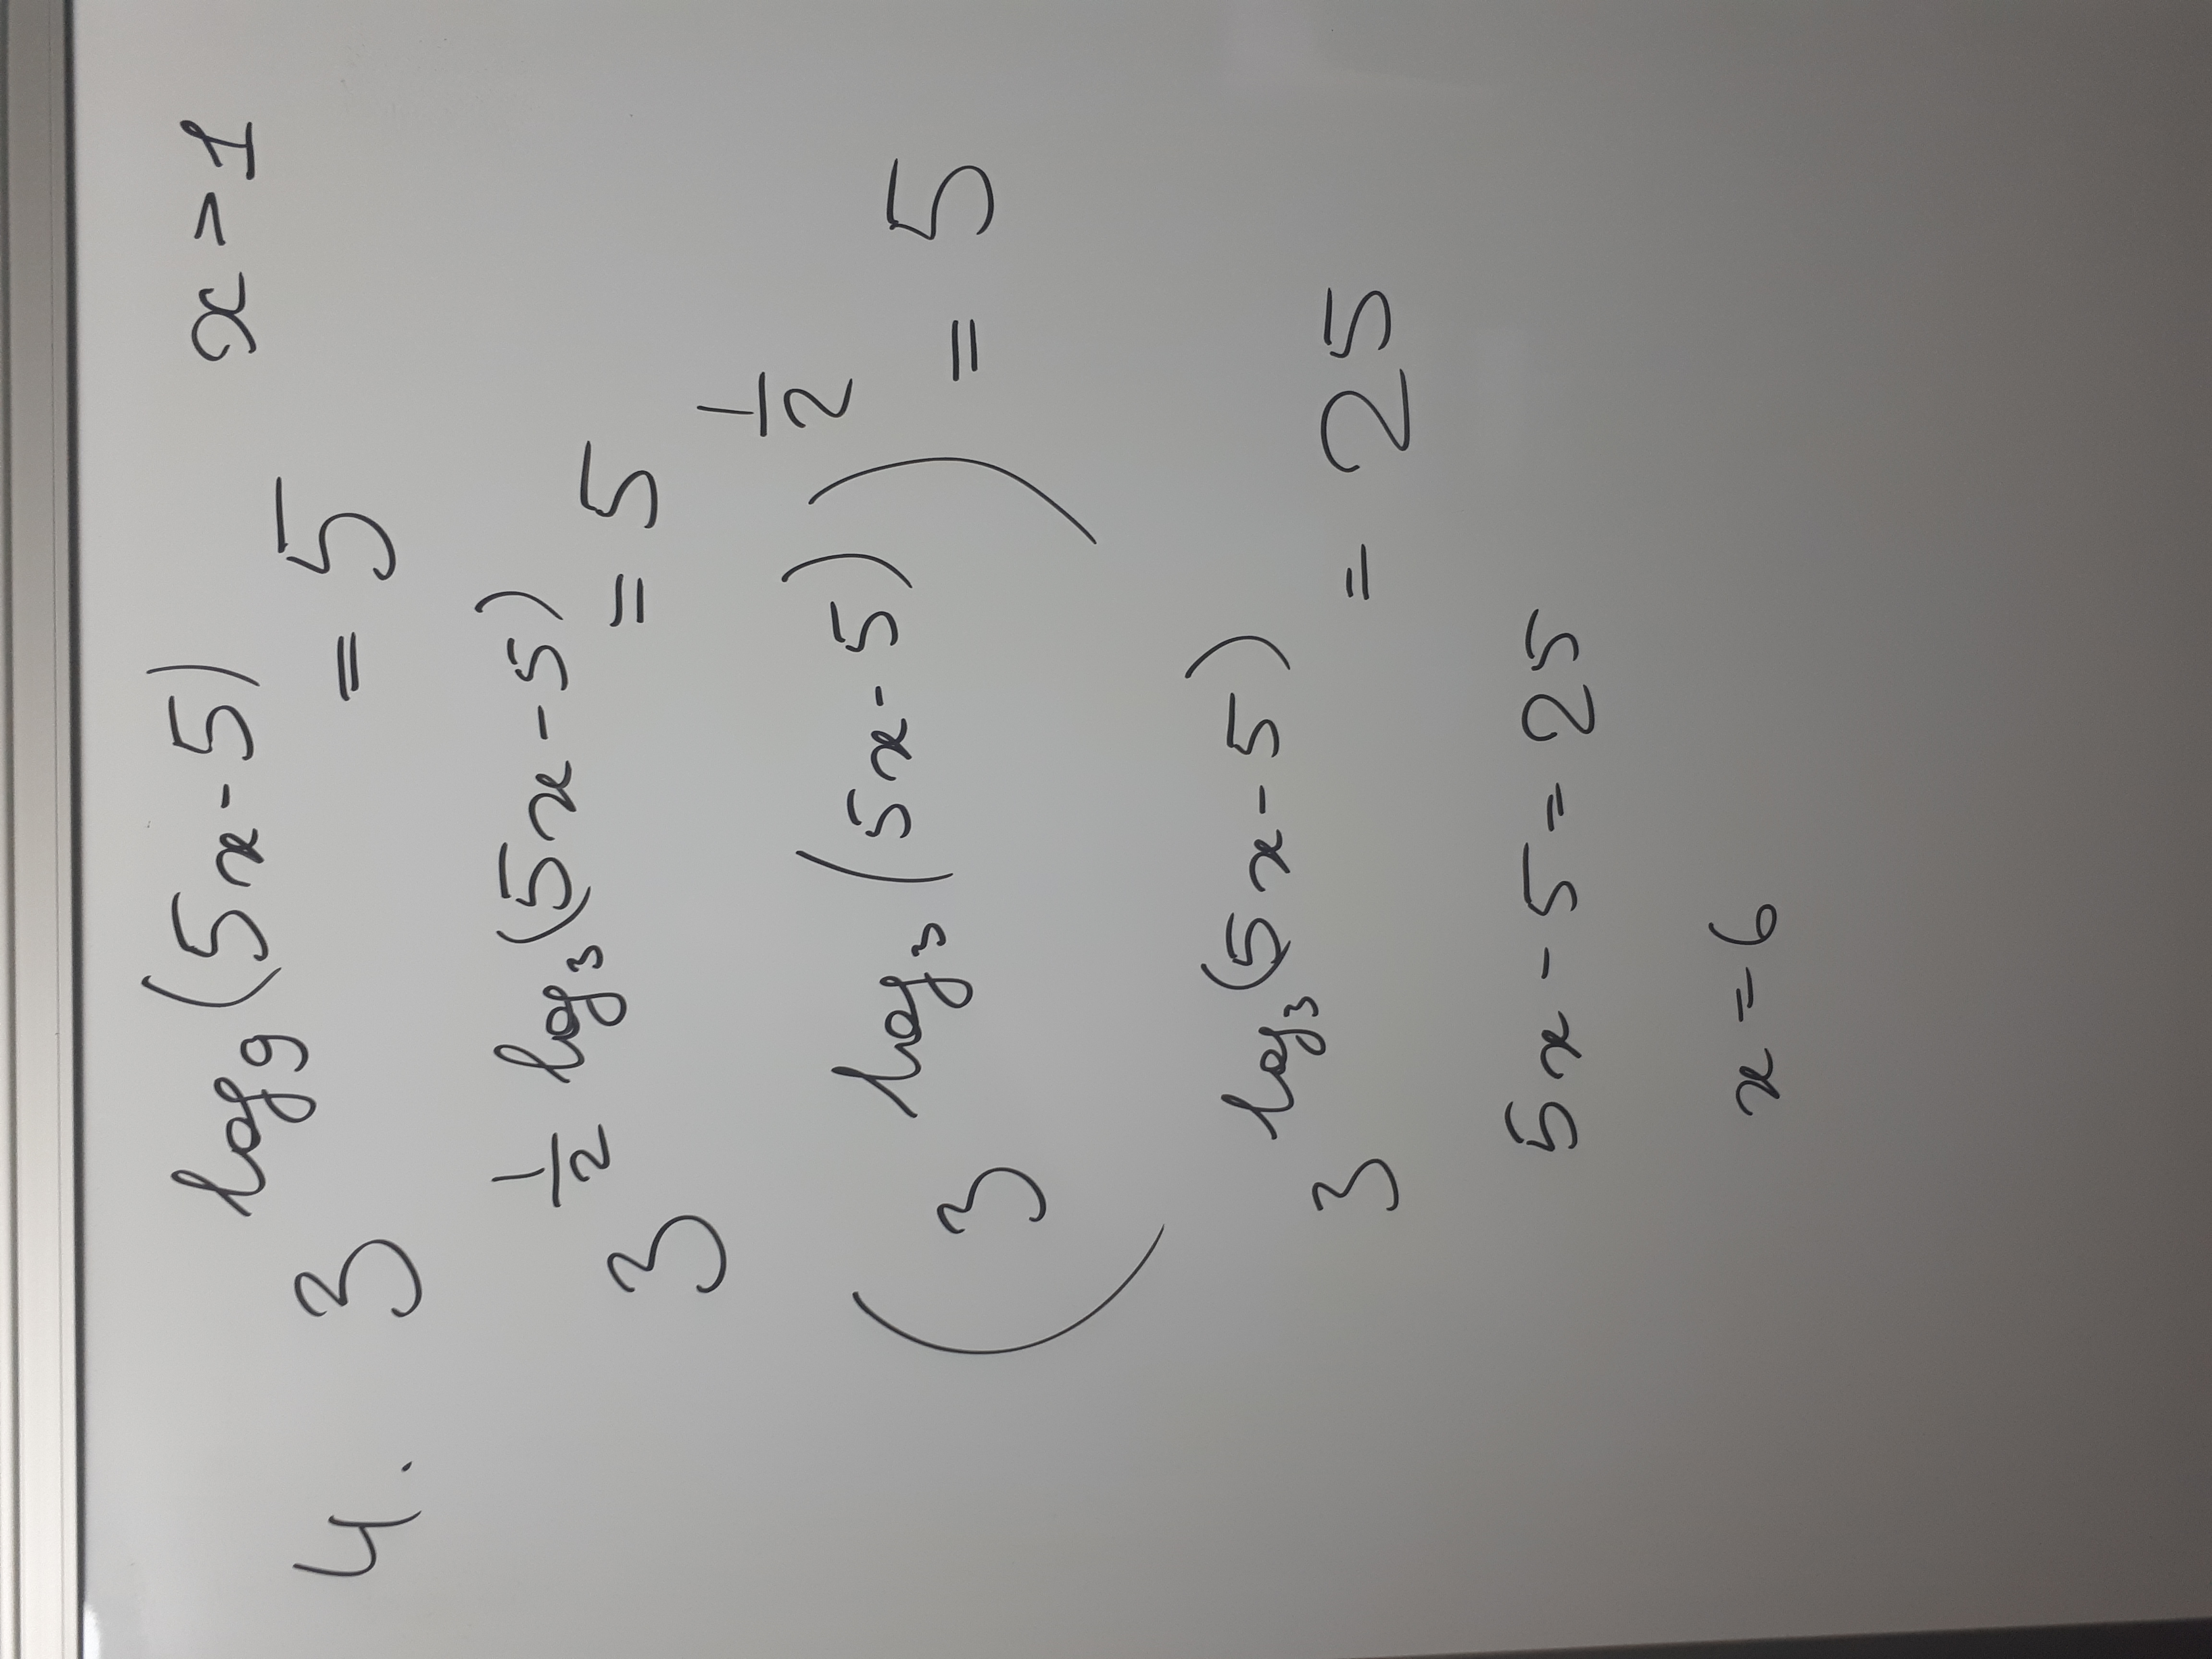 4. 3^{log_9(5x-5)} = 5 x > 1
3^{\frac{1}{2} log_3(5x-5)} = 5
(3^{log_3(5x-5)})^{\frac{1}{2}} = 5
3^{log_3(5x-5)} = 25
5x - 5 = 25
x = 6